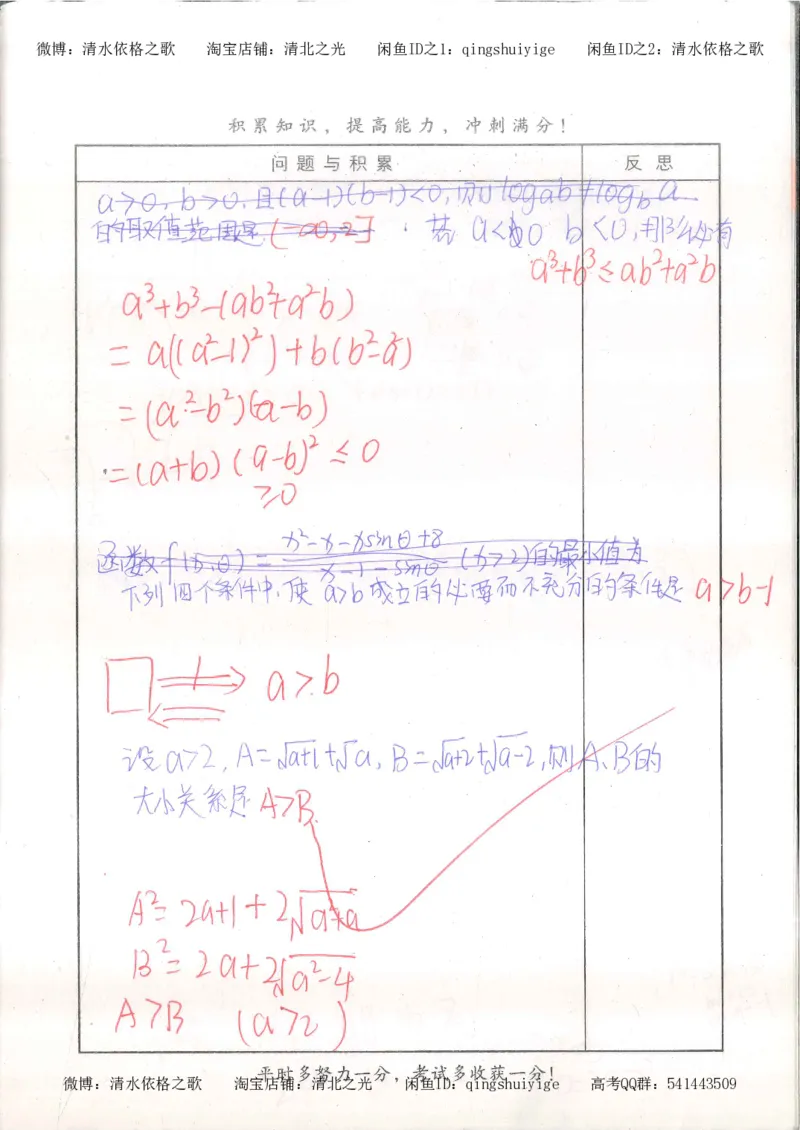 微博：清水依格之歌 淘宝店铺：清北之光 闲鱼ID之1：qingshuiyige 闲鱼ID之2：清水依格之歌
积累知识，提高能力，冲刺满分！
问题与积累 反思
a>0, b>0, 且(a-1)(b-1)<0, 则 logab+logba
的取值范围是 (-∞,-2] 若 a<0 b<0, 那么必有
a³+b³≤ab²+a²b
a³+b³-(ab²+a²b)
=a((a²-1)²)+b(b²-a²)
=(a²-b²)(a-b)
=(a+b)(a-b)²≤0
≥0
函数f(x,θ)=(x²-x-xsinθ+8)/(x-1-sinθ) (x>2)的最小值为
下列四个条件中,使 a>b成立的必要而不充分的条件是 a>b-1
a>b
设a>2, A=√a+1+√a, B=√a+2+√a-2, 则A、B的
大小关系是 A>B
A²=2a+1+2√a²+a
B²=2a+2√a²-4
A>B (a>2)
平时多努力一分，考试多收获一分！
微博：清水依格之歌 淘宝店铺：清北之光 闲鱼ID：qingshuiyige 高考QQ群：541443509